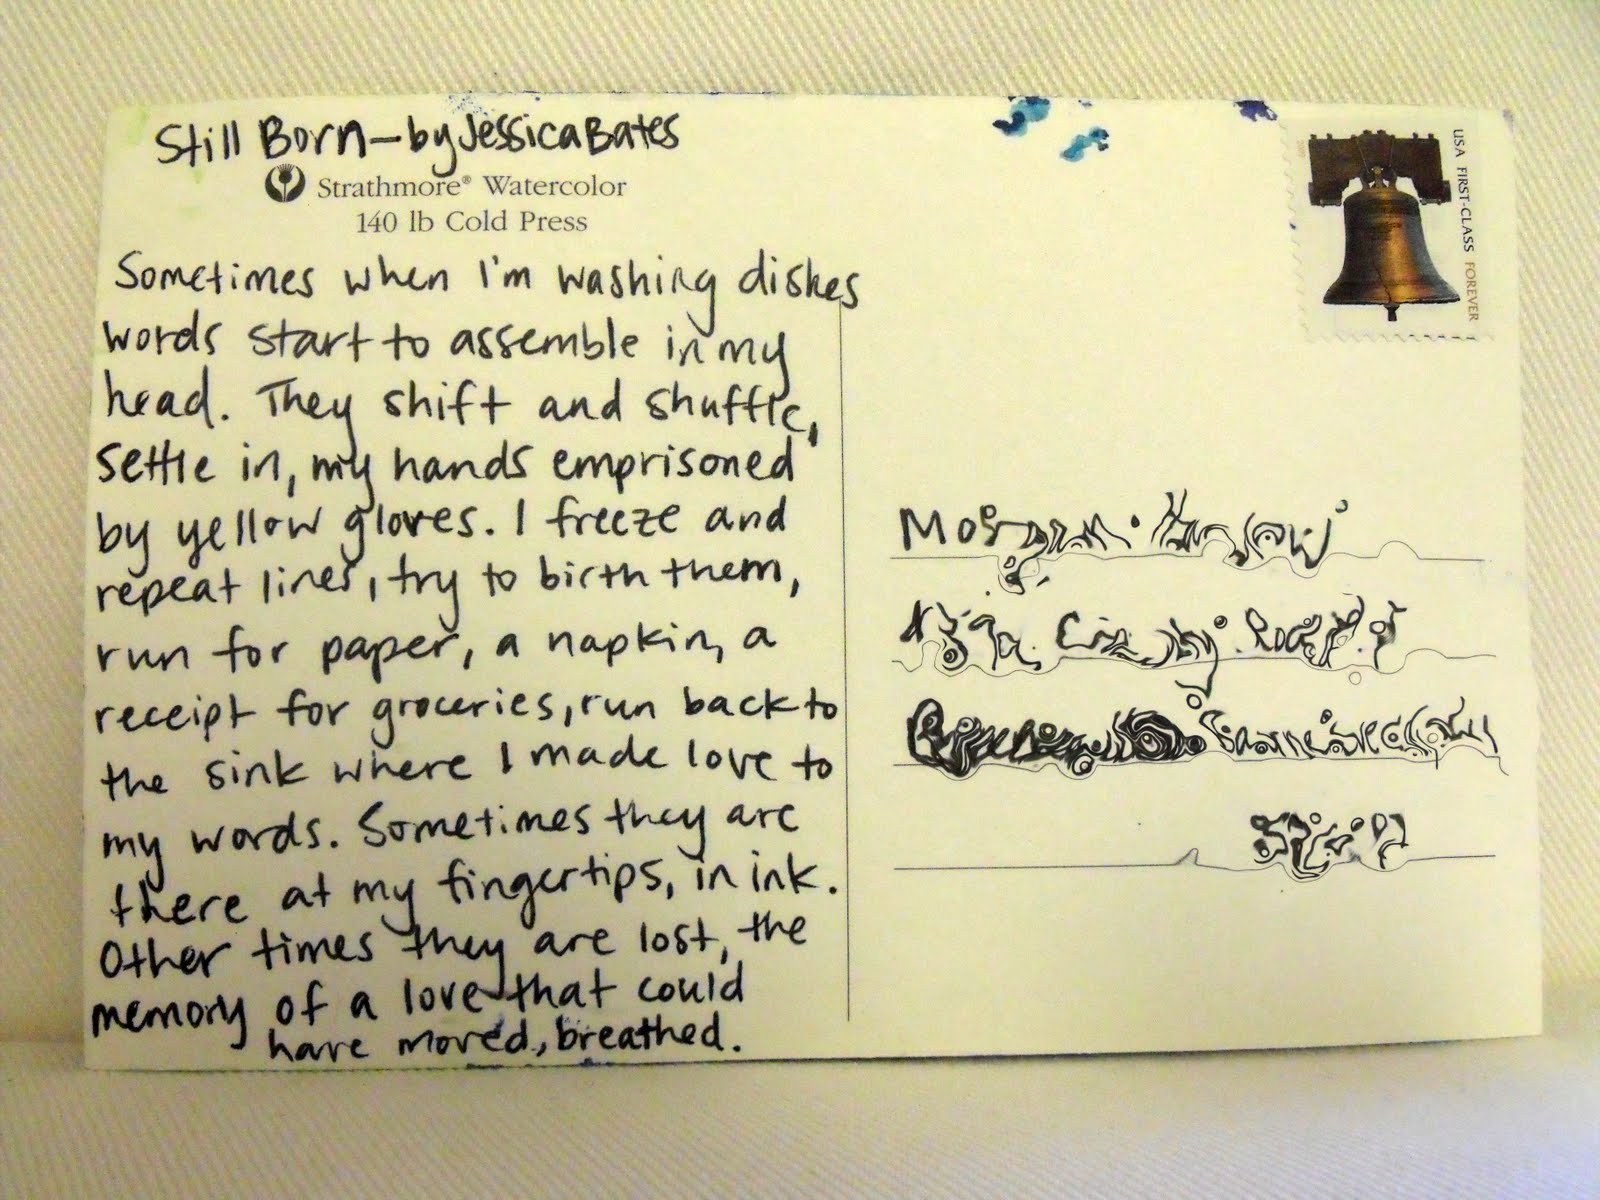 Still Born – by Jessica Bates
Strathmore® Watercolor
140 lb Cold Press
Sometimes when I'm washing dishes
words start to assemble in my
head. They shift and shuffle,
settle in, my hands emprisoned
by yellow gloves. I freeze and
repeat lines, try to birth them,
run for paper, a napkin, a
receipt for groceries, run back to
the sink where I made love to
my words. Sometimes they are
there at my fingertips, in ink.
Other times they are lost, the
memory of a love that could
have moved, breathed.
USA FIRST-CLASS FOREVER